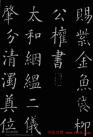 賜紫金魚袋柳
公權書
太和絪縕二儀
肇分清濁奠位